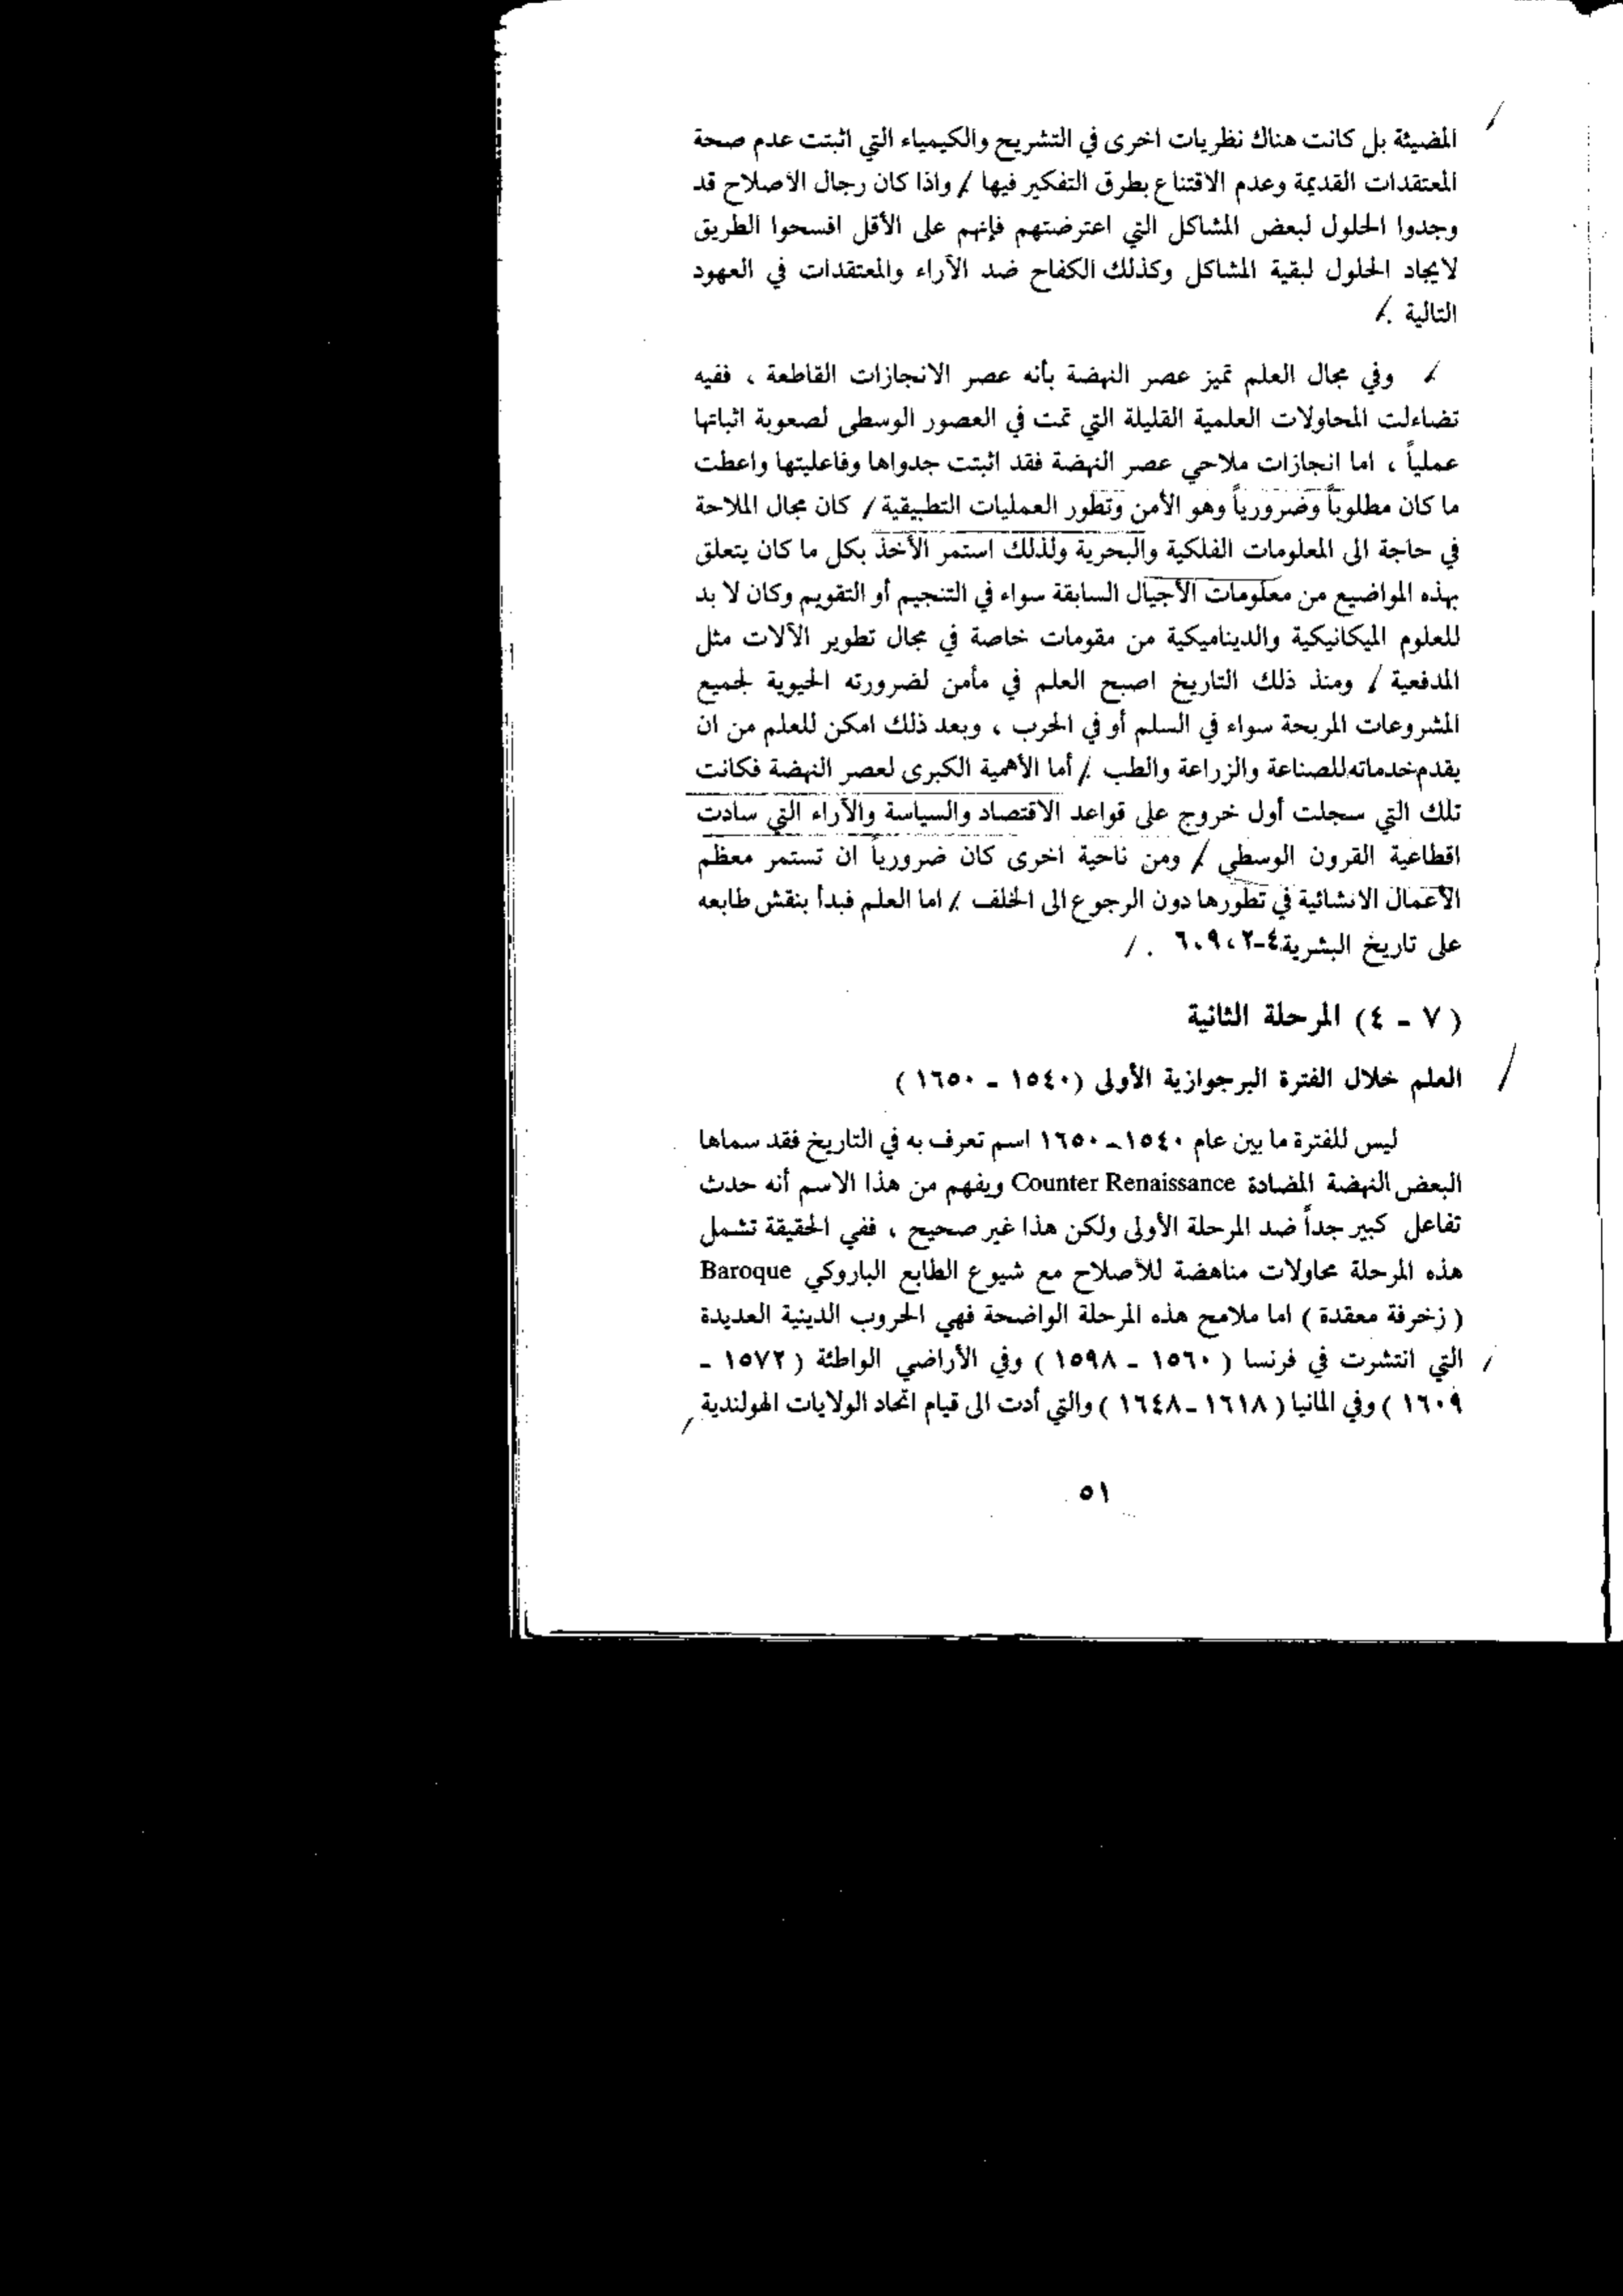 المضيئة بل كانت هناك نظريات اخرى في التشريح والكيمياء التي اثبتت عدم صحة
المعتقدات القديمة وعدم الاقتناع بطرق التفكير فيها / واذا كان رجال الأصلاح قد
وجدوا الحلول لبعض المشاكل التي اعترضتهم فإنهم على الأقل افسحوا الطريق
لايجاد الحلول لبقية المشاكل وكذلك الكفاح ضد الآراء والمعتقدات في العهود
التالية .
وفي مجال العلم تميز عصر النهضة بأنه عصر الانجازات القاطعة ، ففيه
تضاءلت المحاولات العلمية القليلة التي تمت في العصور الوسطى لصعوبة اثباتها
عملياً ، اما انجازات ملاحي عصر النهضة فقد اثبتت جدواها وفاعليتها واعطت
ما كان مطلوباً وضرورياً وهو الأمن وتطور العمليات التطبيقية / كان مجال الملاحة
في حاجة الى المعلومات الفلكية والبحرية ولذلك استمر الأخذ بكل ما كان يتعلق
بهذه المواضيع من معلومات الأجيال السابقة سواء في التنجيم أو التقويم وكان لا بد
للعلوم الميكانيكية والديناميكية من مقومات خاصة في مجال تطوير الآلات مثل
المدفعية / ومنذ ذلك التاريخ اصبح العلم في مأمن لضرورته الحيوية لجميع
المشروعات المربحة سواء في السلم أو في الحرب ، وبعد ذلك امكن للعلم من ان
يقدم خدماته للصناعة والزراعة والطب / أما الأهمية الكبرى لعصر النهضة فكانت
تلك التي سجلت أول خروج على قواعد الاقتصاد والسياسة والآراء التي سادت
اقطاعية القرون الوسطى / ومن ناحية اخرى كان ضرورياً ان تستمر معظم
الأعمال الانشائية في تطورها دون الرجوع الى الخلف / اما العلم فبدأ بنقش طابعه
على تاريخ البشرية٤-٢،٩،٦ . /
( ٧ - ٤ ) المرحلة الثانية
العلم خلال الفترة البرجوازية الأولى (١٥٤٠ - ١٦٥٠ )
ليس للفترة ما بين عام ١٥٤٠-١٦٥٠ اسم تعرف به في التاريخ فقد سماها
البعض النهضة المضادة Counter Renaissance ويفهم من هذا الاسم أنه حدث
تفاعل كبير جداً ضد المرحلة الأولى ولكن هذا غير صحيح ، ففي الحقيقة تشمل
هذه المرحلة محاولات مناهضة للأصلاح مع شيوع الطابع الباروكي Baroque
( زخرفة معقدة ) اما ملامح هذه المرحلة الواضحة فهي الحروب الدينية العديدة
التي انتشرت في فرنسا ( ١٥٦٠ - ١٥٩٨ ) وفي الأراضي الواطئة ( ١٥٧٢ -
١٦٠٩ ) وفي المانيا ( ١٦١٨ - ١٦٤٨ ) والتي أدت الى قيام اتحاد الولايات الهولندية
٥١